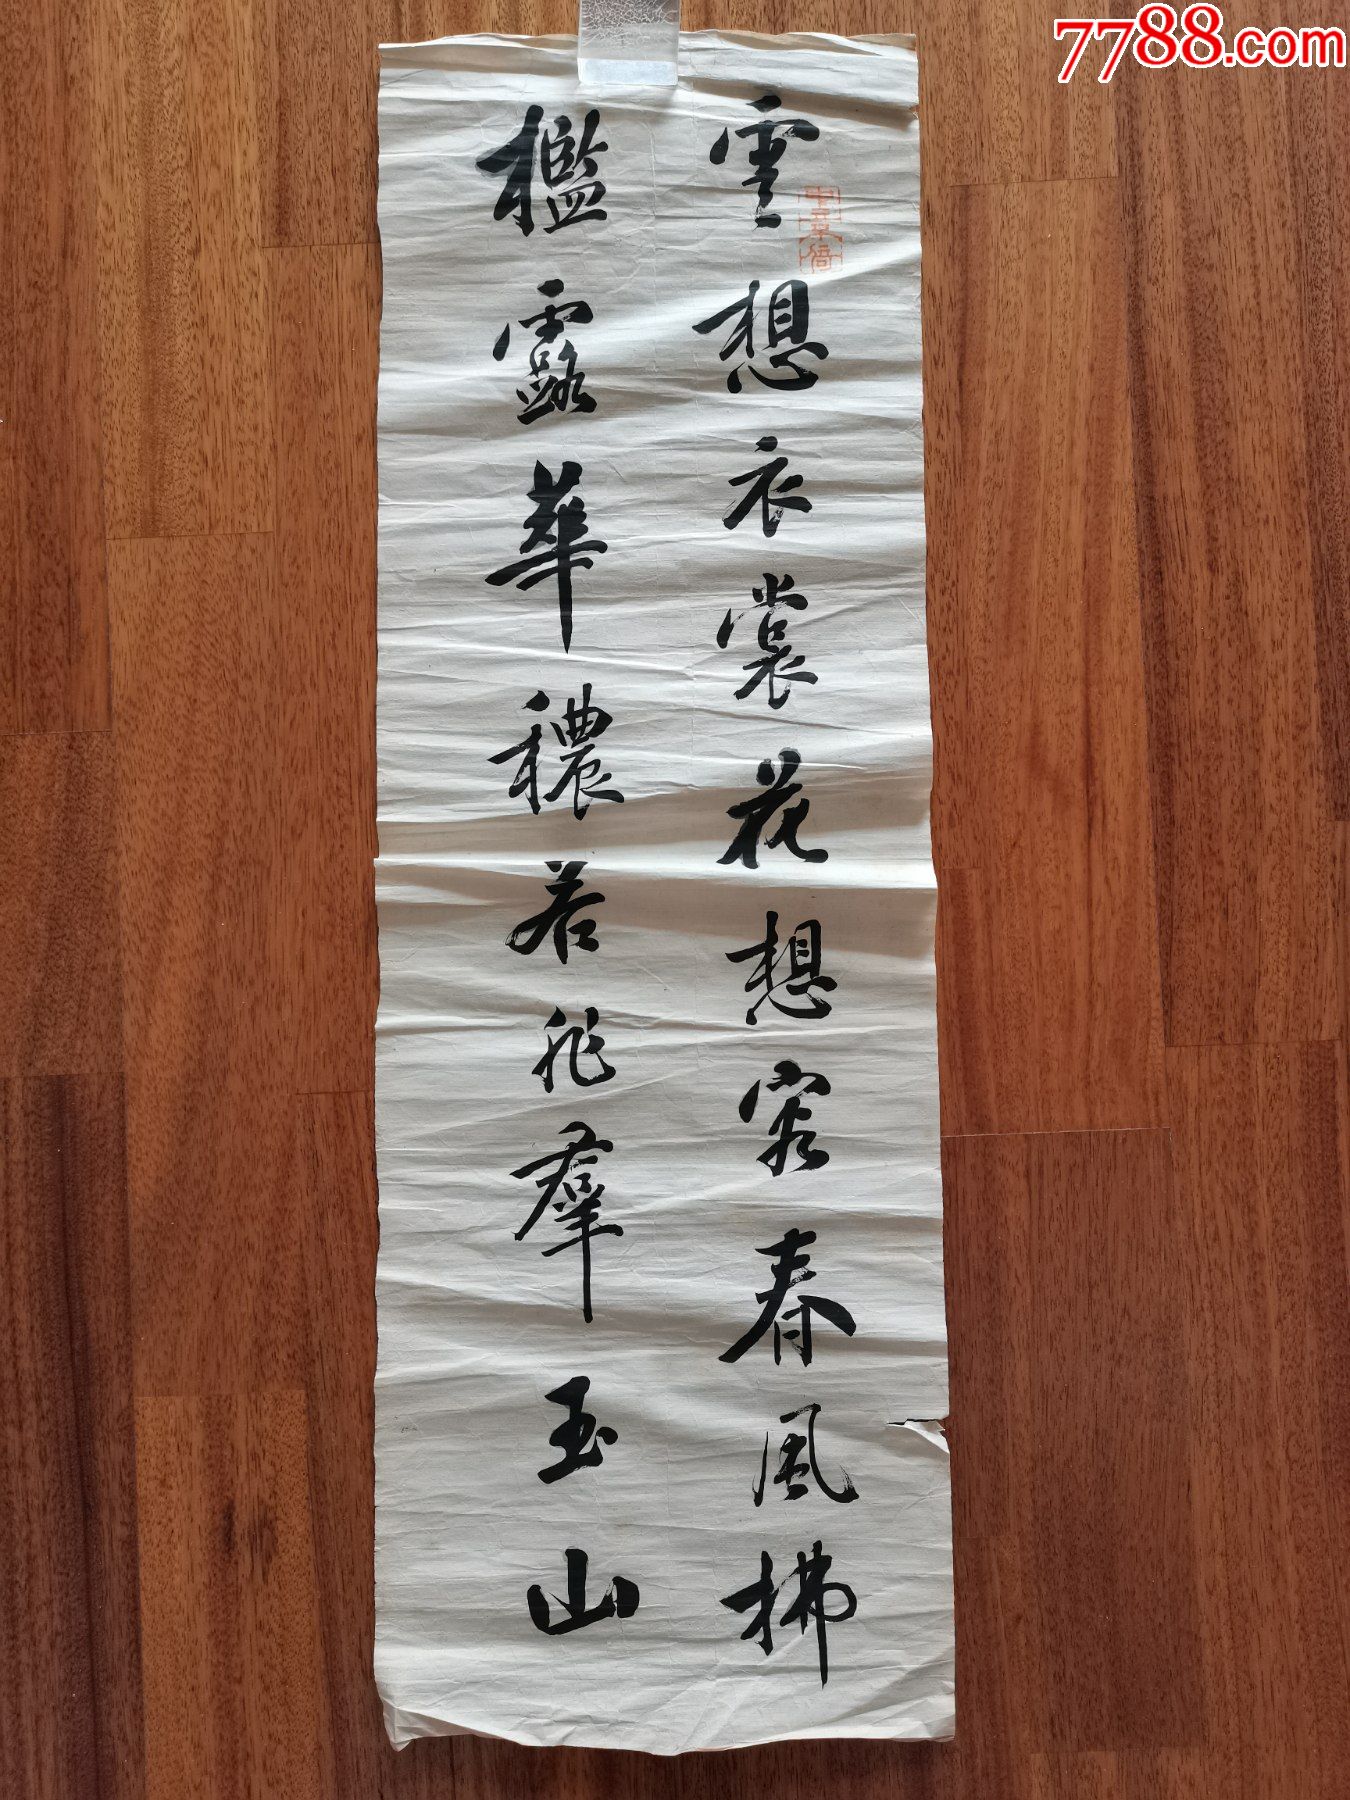 雲想衣裳花想容春風拂
檻露華穠若非羣玉山
7788.com